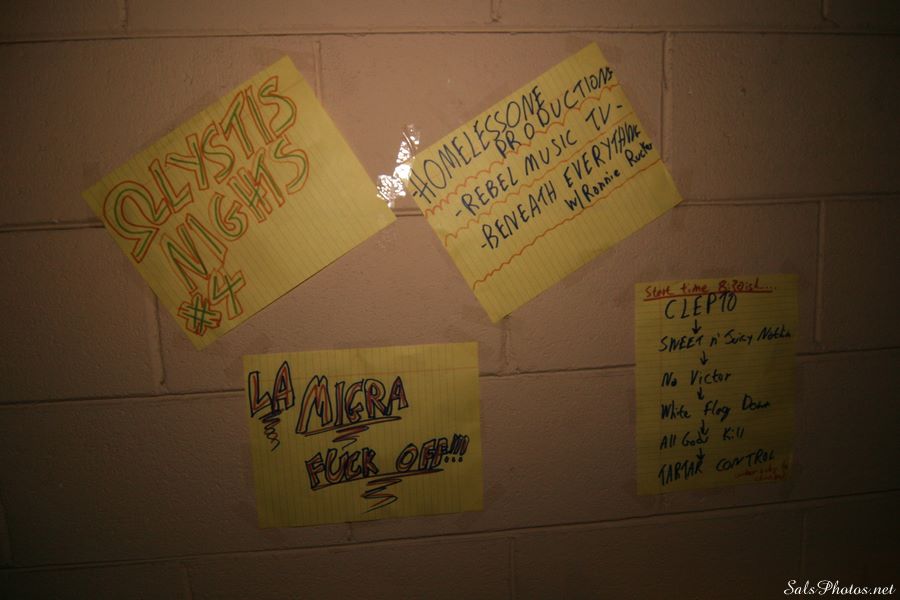 ΩLLYSTIS
NIGHTS
#4
-HOMELESSONE
PRODUCTIONS
-REBEL MUSIC TV-
-BENEATH EVERYTHING
w/Ronnie Rucker
LA MIGRA
FUCK OFF!!!
Start time
CLEPTO
SWEET n' Juicy
No Victor
White Flag Down
All Gods Kill
TARTAR CONTROL
SalsPhotos.net